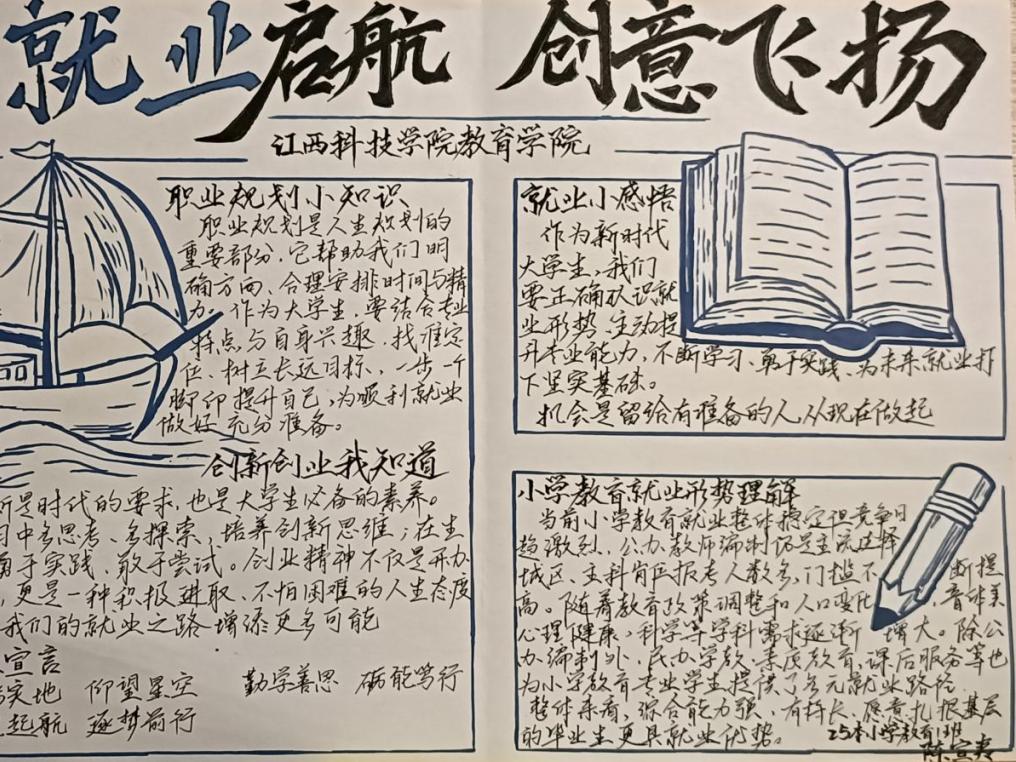 就业启航 创意飞扬
江西科技学院教育学院
职业规划小知识
职业规划是人生规划的
重要部分，它帮助我们明
确方向、合理安排时间与精
力。作为大学生，要结合专业
特点与自身兴趣，找准定
位、树立长远目标，一步一个
脚印提升自己，为顺利就业
做好充分准备。
创新创业我知道
新是时代的要求，也是大学生必备的素养。
中多思考、多探索，培养创新思维；在生
勇于实践、敢于尝试。创业精神不仅是开办
，更是一种积极进取、不怕困难的人生态度
我们的就业之路增添更多可能
宣言
实地 仰望星空 勤学善思 砺能笃行
起航 逐梦前行
就业小感悟
作为新时代
大学生，我们
要正确认识就
业形势，主动提
升专业能力，不断学习、勇于实践、为未来就业打
下坚实基础。
机会是留给有准备的人，从现在做起
小学教育就业形势理解
当前小学教育就业整体稳定但竞争日
趋激烈，公办教师编制仍是主流选择
城区、主科岗位报考人数多，门槛不断提
高。随着教育政策调整和人口变化，音体美
心理健康，科学等学科需求逐渐增大。除公
办编制外，民办学校、素质教育、课后服务等也
为小学教育专业学生提供了多元就业路径
整体来看，综合能力强、有特长、愿意扎根基层
的毕业生更具就业优势。
25本小学教育1班